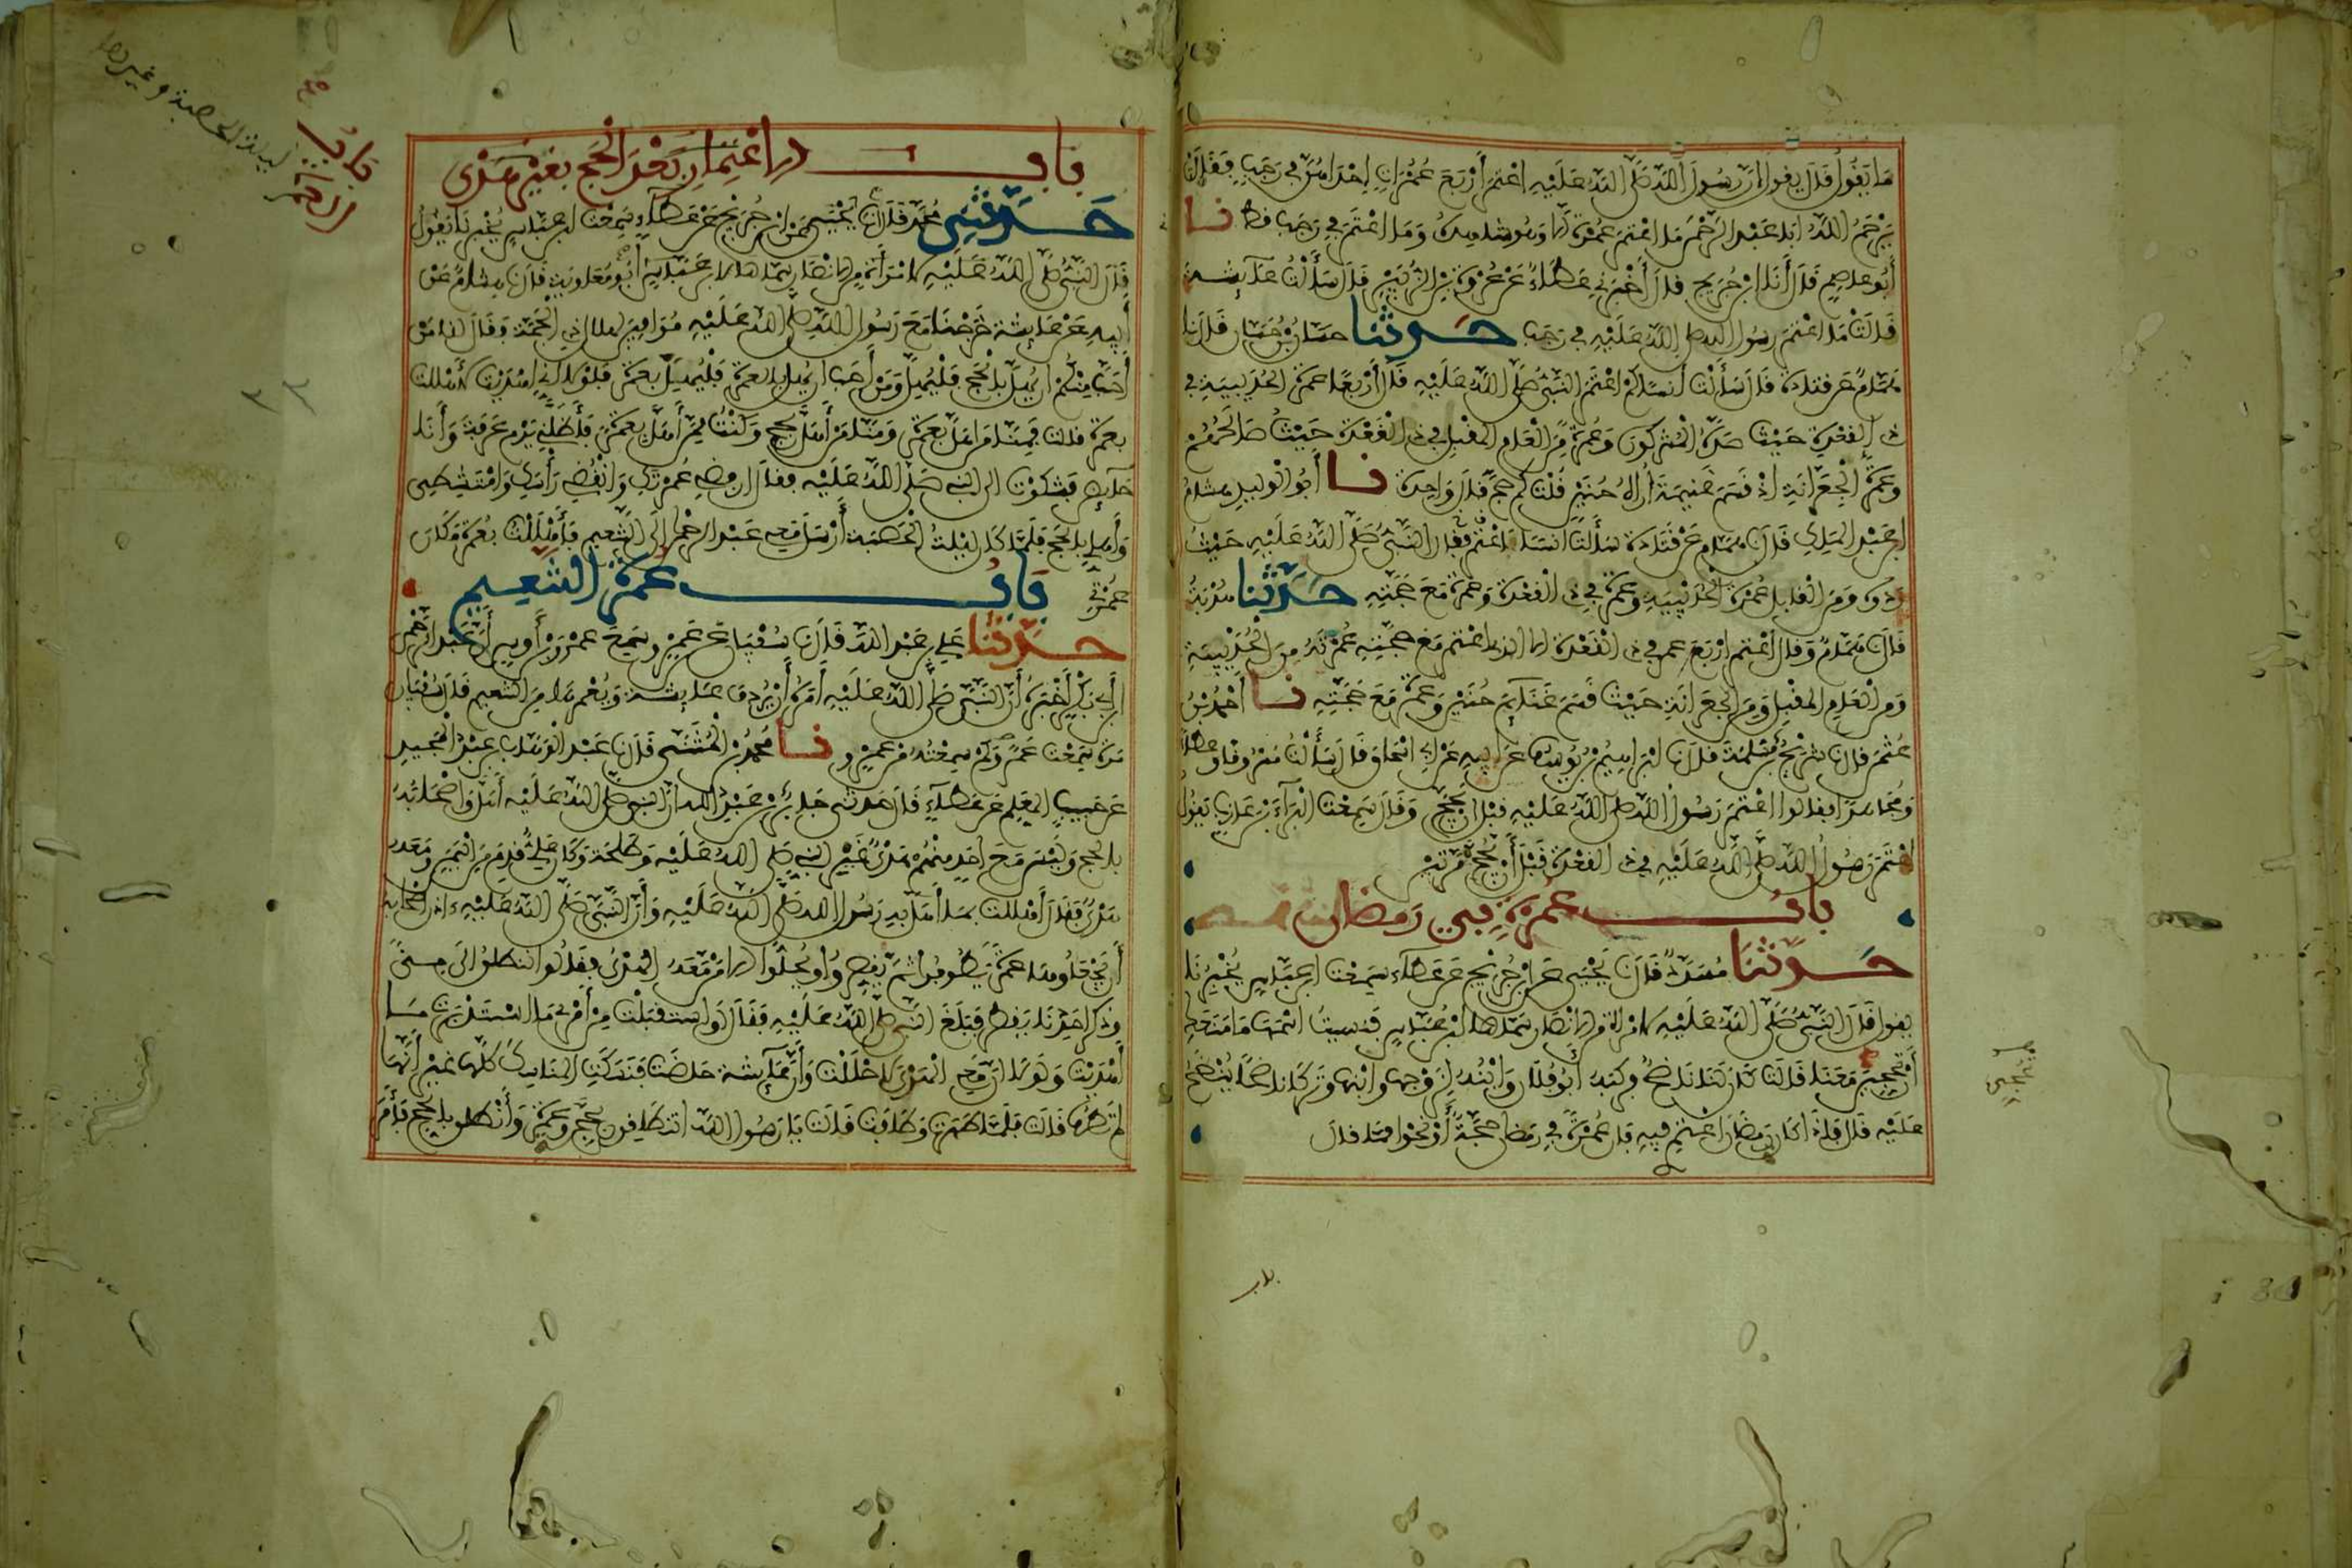 ما يقول قال يقول ان رسول الله صلى الله عليه اعتمر أربع عمرات إحداهن في رجب فقالت
يرحم الله ابا عبد الرحمن ما اعتمر عمرة الا وهو شاهده وما اعتمر في رجب قط نا
أبو عاصم قال أنا ابن جريج قال أخبرني عطاء عن عروة بن الزبير قال سألت عائشة
قالت ما اعتمر رسول الله صلى الله عليه في رجب حدثنا حسان بن حسان قال نا
همام عن قتادة قال سألت أنسا كم اعتمر النبي صلى الله عليه قال أربعا عمرة الحديبية في
ذي القعدة حيث صده المشركون وعمرة من العام المقبل في ذي القعدة حيث صالحهم
وعمرة الجعرانة اذ قسم غنيمة أراه حنين قلت كم حج قال واحدة نا أبو الوليد هشام
ابن عبد الملك قال نا همام عن قتادة سألت انسا فقال اعتمر النبي صلى الله عليه حيث
ردوه ومن القابل عمرة الحديبية وعمرة في ذي القعدة وعمرة مع حجته حدثنا هدبة
قال نا همام وقال اعتمر اربع عمر في ذي القعدة الا الذي اعتمر مع حجته عمرته من الحديبية
ومن العام المقبل ومن الجعرانة حيث قسم غنائم حنين وعمرة مع حجته نا أحمد بن
عثمن قال نا شريح بن مسلمة قال نا ابراهيم بن يوسف عن ابيه عن ابي اسحاق قال سألت مسروقا وعطاء
ومجاهدا فقالوا اعتمر رسول الله صلى الله عليه قبل ان يحج وقال سمعت البراء بن عازب يقول
اعتمر رسول الله صلى الله عليه في ذي القعدة قبل أن يحج مرتين
باب عمرة في رمضان
حدثنا مسدد قال نا يحيى عن ابن جريج عن عطاء سمعت ابن عباس يخبرنا
يقول قال النبي صلى الله عليه لامرأة من الانصار سماها ابن عباس فنسيت اسمها ما منعك
أن تحجين معنا قالت كان لنا ناضح فركبه أبو فلان وابنه لزوجها وابنها وترك ناضحا ننضح
عليه قال فاذا كان رمضان اعتمري فيه فان عمرة في رمضان حجة أو نحوا مما قال
باب الاعتمار بعد الحج بغير هدي
حدثني محمد قال نا يحيى عن ابن جريج عن عطاء سمعت ابن عباس يخبرنا يقول
قال النبي صلى الله عليه لامرأة من الانصار سماها ابن عباس أبو معاوية قال نا هشام عن
أبيه عن عائشة خرجنا مع رسول الله صلى الله عليه موافين لهلال ذي الحجة وقال لنا من
أحب منكم ان يهل بالحج فليهل ومن أحب ان يهل بالعمرة فليهل بعمرة فلولا اني اهديت لأهللت
بعمرة قالت فمنا من اهل بعمرة ومنا من أهل بحج وكنت ممن أهل بعمرة فأظلني يوم عرفة وأنا
حائض فشكوت الى النبي صلى الله عليه فقال ارفضي عمرتك وانقضي رأسك وامتشطي
وأهلي بالحج فلما كان ليلة الحصبة أرسل معي عبد الرحمن الى التنعيم فأهللت بعمرة مكان
عمرتي باب عمرة التنعيم
حدثنا علي بن عبد الله قال نا سفيان عن عمرو سمع عمرو بن أوس أن عبد الرحمن
ابن أبي بكر أخبره أن النبي صلى الله عليه أمره أن يردف عائشة ويعمرها من التنعيم قال سفيان
مرة سمعت عمرا وكم سمعته من عمرو نا محمد بن المثنى قال نا عبد الوهاب بن عبد المجيد
عن حبيب المعلم عن عطاء قال حدثني جابر بن عبد الله أن النبي صلى الله عليه أهل واصحابه
بالحج وليس مع أحد منهم هدي غير النبي صلى الله عليه وطلحة وكان علي قدم من اليمن ومعه
هدي فقال أهللت بما أهل به رسول الله صلى الله عليه وأن النبي صلى الله عليه اذن لاصحابه
أن يجعلوها عمرة يطوفوا ثم يقصروا ويحلوا الا من معه الهدي فقالوا ننطلق الى منى
وذكر احدنا يقطر فبلغ النبي صلى الله عليه فقال لو استقبلت من أمري ما استدبرت ما
أهديت ولولا ان معي الهدي لاحللت وأن عائشة حاضت فنسكت المناسك كلها غير أنها
لم تطف قالت فلما طهرت وطافت قالت يا رسول الله اتنطلقون بحجة وعمرة وأنطلق بالحج فأمر
باب
العمرة
ليلة الحصبة وغيرها